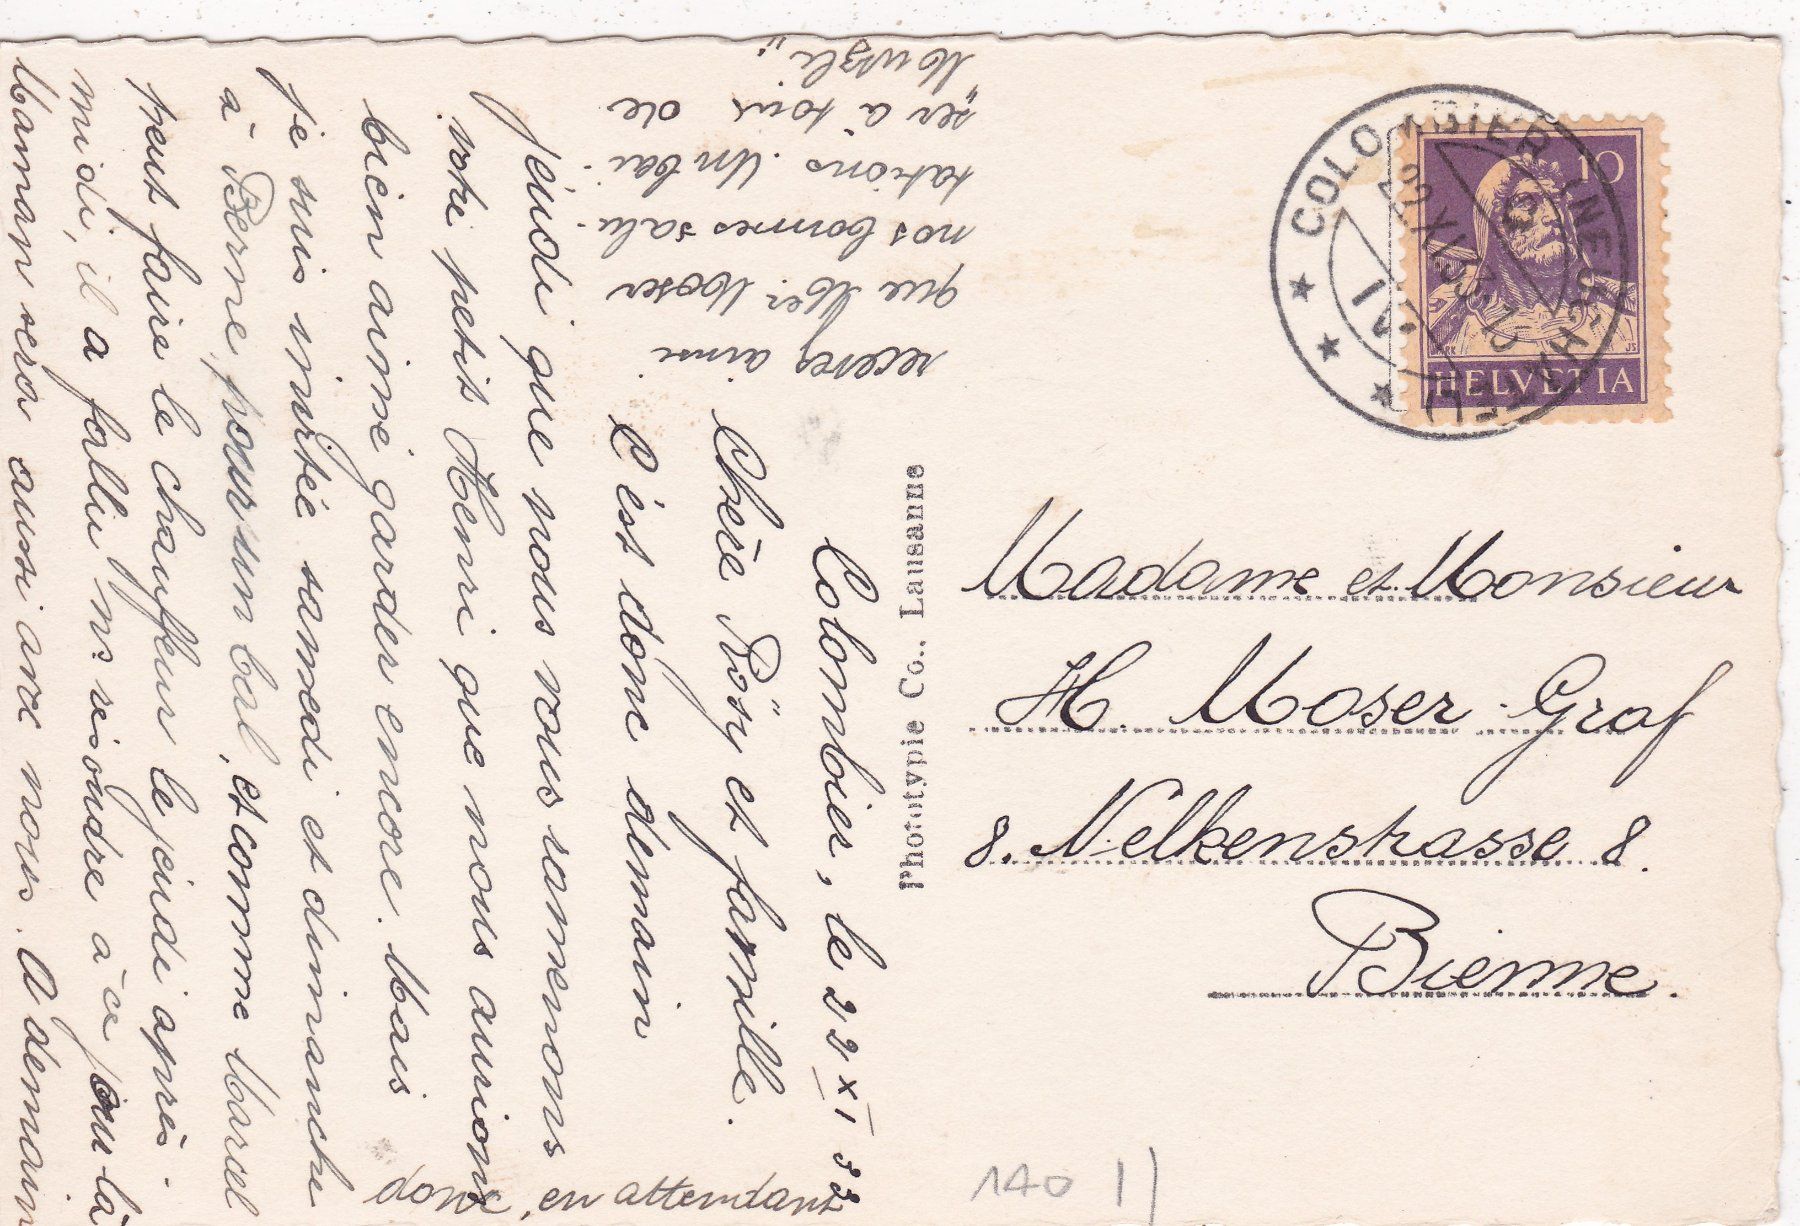 Colombier, le 22 XI 33
Chère Rösy et famille.
C'est donc demain
jeudi que nous vous ramenons
votre petit Henri que nous aurions
bien aimé garder encore. Mais
je suis invitée samedi et dimanche
à Berne, pour un bal, et comme Marcel
peut faire le chauffeur le jeudi après-
midi, il a fallu ns. résoudre à ce jour-là
Maman sera aussi avec nous. A demain
donc, en attendant
recevez ainsi
que Mer Moser
nos bonnes salu-
tations. Un bai-
ser à tous de
"Mouzli"
Phototypie Co., Lausanne
COLOMBIER (NEUCHATEL)
22.XI.33
10
HELVETIA
Madame et Monsieur
H. Moser-Graf
8. Nelkenstrasse 8.
Bienne.
140